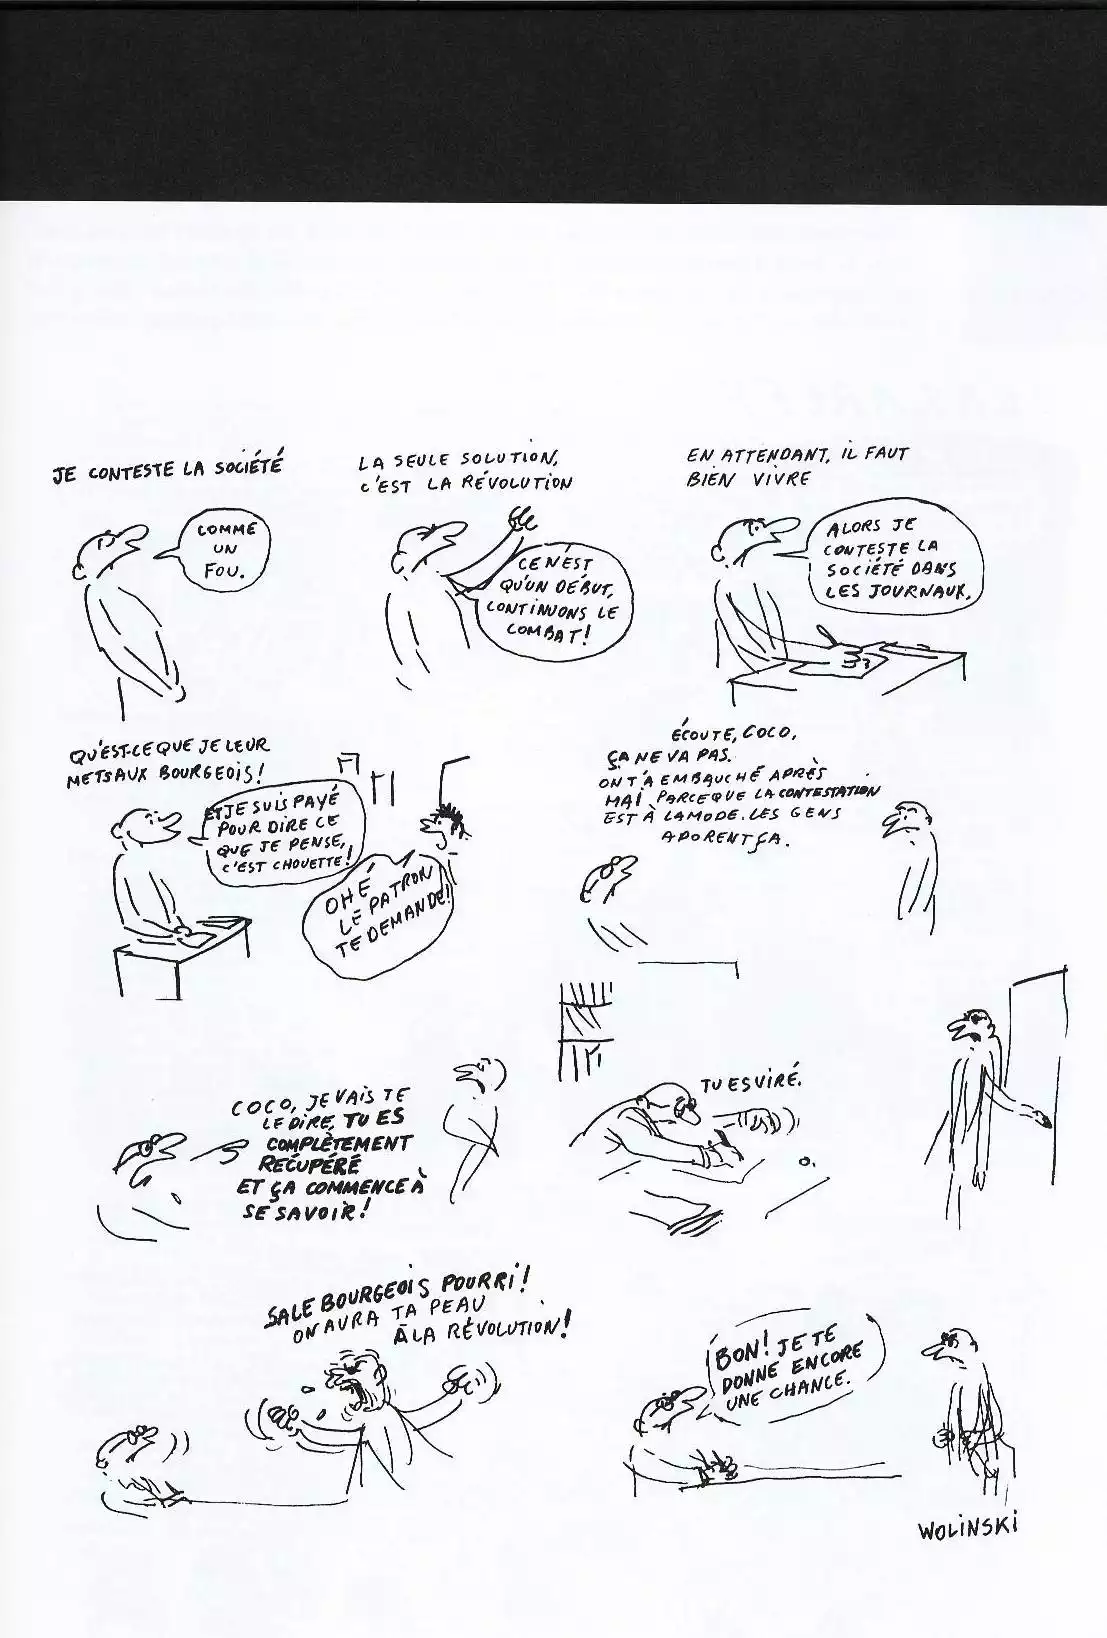 JE CONTESTE LA SOCIÉTÉ
COMME
UN
FOU.
LA SEULE SOLUTION,
C'EST LA RÉVOLUTION
CE N'EST
QU'UN DÉBUT,
CONTINUONS LE
COMBAT!
EN ATTENDANT, IL FAUT
BIEN VIVRE
ALORS JE
CONTESTE LA
SOCIÉTÉ DANS
LES JOURNAUX.
QU'EST-CE QUE JE LEUR
METS AUX BOURGEOIS!
ET JE SUIS PAYÉ
POUR DIRE CE
QUE JE PENSE,
C'EST CHOUETTE!
OHÉ
LE PATRON
TE DEMANDE!
ÉCOUTE, COCO,
ÇA NE VA PAS.
ON T'A EMBAUCHÉ APRÈS
MAI PARCE QUE LA CONTESTATION
EST À LA MODE. LES GENS
ADORENT ÇA.
COCO, JE VAIS TE
LE DIRE, TU ES
COMPLÈTEMENT
RÉCUPÉRÉ
ET ÇA COMMENCE À
SE SAVOIR!
TU ES VIRÉ.
SALE BOURGEOIS POURRI!
ON AURA TA PEAU
À LA RÉVOLUTION!
BON! JE TE
DONNE ENCORE
UNE CHANCE.
WOLINSKI